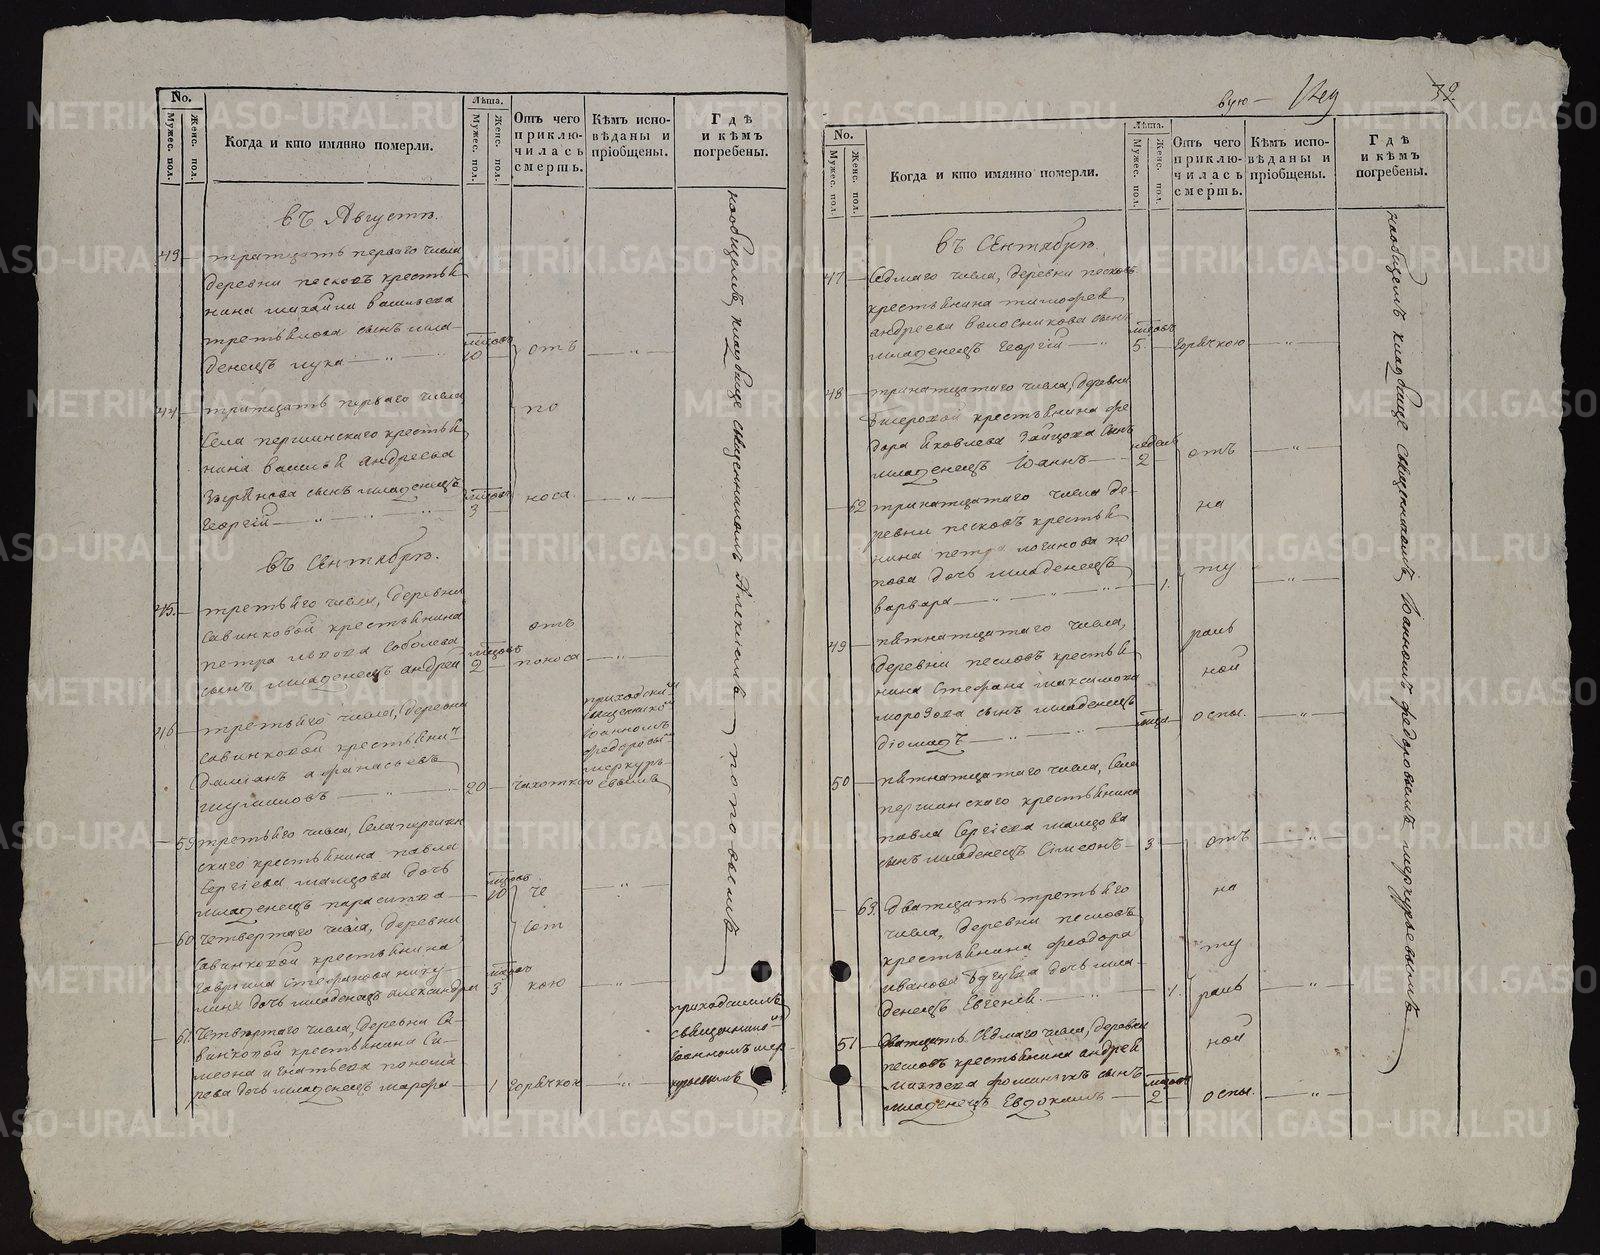 No.
Мужес. пол.
Женс. пол.
Когда и кто имянно померли.
Лѣта.
Мужес. пол.
Женс. пол.
Отъ чего
приклю-
чилась
смерть.
Кѣмъ испо-
вѣданы и
прiобщены.
Гдѣ
и кѣмъ
погребены.
въ Августѣ.
43 тритцать перваго числа
деревни песковъ крестья
нина михайла васильева
третьякова сынъ мла-
денецъ лука
мѣсцовъ
10
отъ
44 тритцать перваго числа
села першинскаго крестья
нина василья андреева
Зырянова сынъ младенецъ
георгiй
мѣсцовъ
3
по
носа
въ Сентябрѣ.
45. третьяго числа, деревни
савинковой крестьянина
петра соболева
сынъ младенецъ андрей
мѣсцовъ
2
отъ
поноса
46 третьяго числа, деревни
савинковой крестьянинъ
дамианъ афанасьевъ
20 чахоткою
приходскимъ
священникомъ
Iоанномъ
федоровымъ
меркурь-
евымъ
59 третьяго числа, села першин
скаго крестьянина павла
Сергiева дочь
младенецъ параскива
мѣсцовъ
10
че
сот
кою
60 четвертаго числа, деревни
савинковой крестьянина
гаврила Стефанова нику-
лина дочь младенецъ александра
мѣсцовъ
3
61. Четвертаго числа, деревни Са-
винковой крестьянина Си-
меона игнатьева понома
рева дочь младенецъ марфа
1 горячкою
на общемъ кладбище священникомъ Алексiемъ поповымъ
приходскимъ
священникомъ
Iоанномъ мер-
курьевымъ
вую
79.
No.
Мужес. пол.
Женс. пол.
Когда и кто имянно померли.
Лѣта.
Мужес. пол.
Женс. пол.
Отъ чего
приклю-
чилась
смерть.
Кѣмъ испо-
вѣданы и
прiобщены.
Гдѣ
и кѣмъ
погребены.
въ Сентябрѣ.
47 Седмаго числа, деревни песковъ
крестьянина тимофея
андреева колосникова сынъ
младенецъ Георгiй
мѣсцовъ
5. Горячкою
48 тринатцатаго числа, деревни
крестьянина фе
дора яковлева Зайцова сынъ
младенецъ Iоаннъ
недель
2
отъ
62 тринатцатаго числа де-
ревни песковъ крестья
нина петра логинова по
пова дочь младенецъ
варвара
1.
на
ту
49 пятнатцатаго числа,
деревни песковъ крестья
нина Стефана максимова
морозова сынъ младенецъ
дiомидъ
раль
ной
оспы.
50 пятнатцатаго числа, села
першинскаго крестьянина
павла Сергiева
сынъ младенецъ Симеонъ
3
отъ
63. дватцать третьяго
числа, деревни песковъ
крестьянина феодора
иванова дочь мла-
денецъ Евгенiя.
1.
на
ту
раль
51 Дватцать седмаго числа, деревни
песковъ крестьянина андрея
матвеева фоминыхъ сынъ
младенецъ Евдокимъ
мѣсцовъ
2
ной
оспы.
на общемъ кладбище священникомъ Iоанномъ федоровымъ меркурьевымъ
METRIKI.GASO-URAL.RU